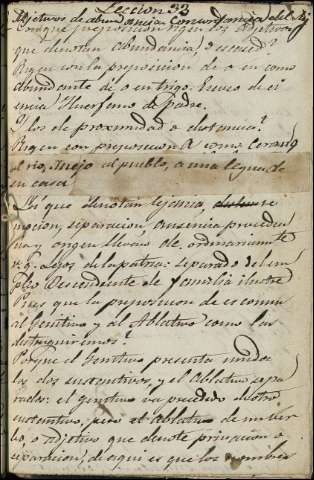 Leccion 33
Adjetivos de abundancia
Con que preposicion rigen los adjetivos
que denotan abundancia, o escasez?
Rigen con la preposicion de o en como
abundante de o en trigo. Escaso de ci
encia Huerfano de padre.
Y los de proximidad o distancia?
Rigen con preposicion A como Cercano
al rio, Anejo al pueblo, a una legua de
su casa
Los que denotan lejania,
mocion, separacion, ausencia proceden
cia y origen llevan de ordinariamente
v. g. Lejos de la patria: separado del em
pleo Descendiente de familia ilustre
Pues que la preposicion de es comun
al Genitivo y al Ablativo como los
distinguiremos?
Porque el Genitivo presenta unidos
los dos sustantivos, y el Ablativo sepa
rados: el genitivo va precedido de otro
sustantivo, pero el Ablativo de un ver
bo, o adjetivo que denote privacion o
separacion, de aqui es que los nombres